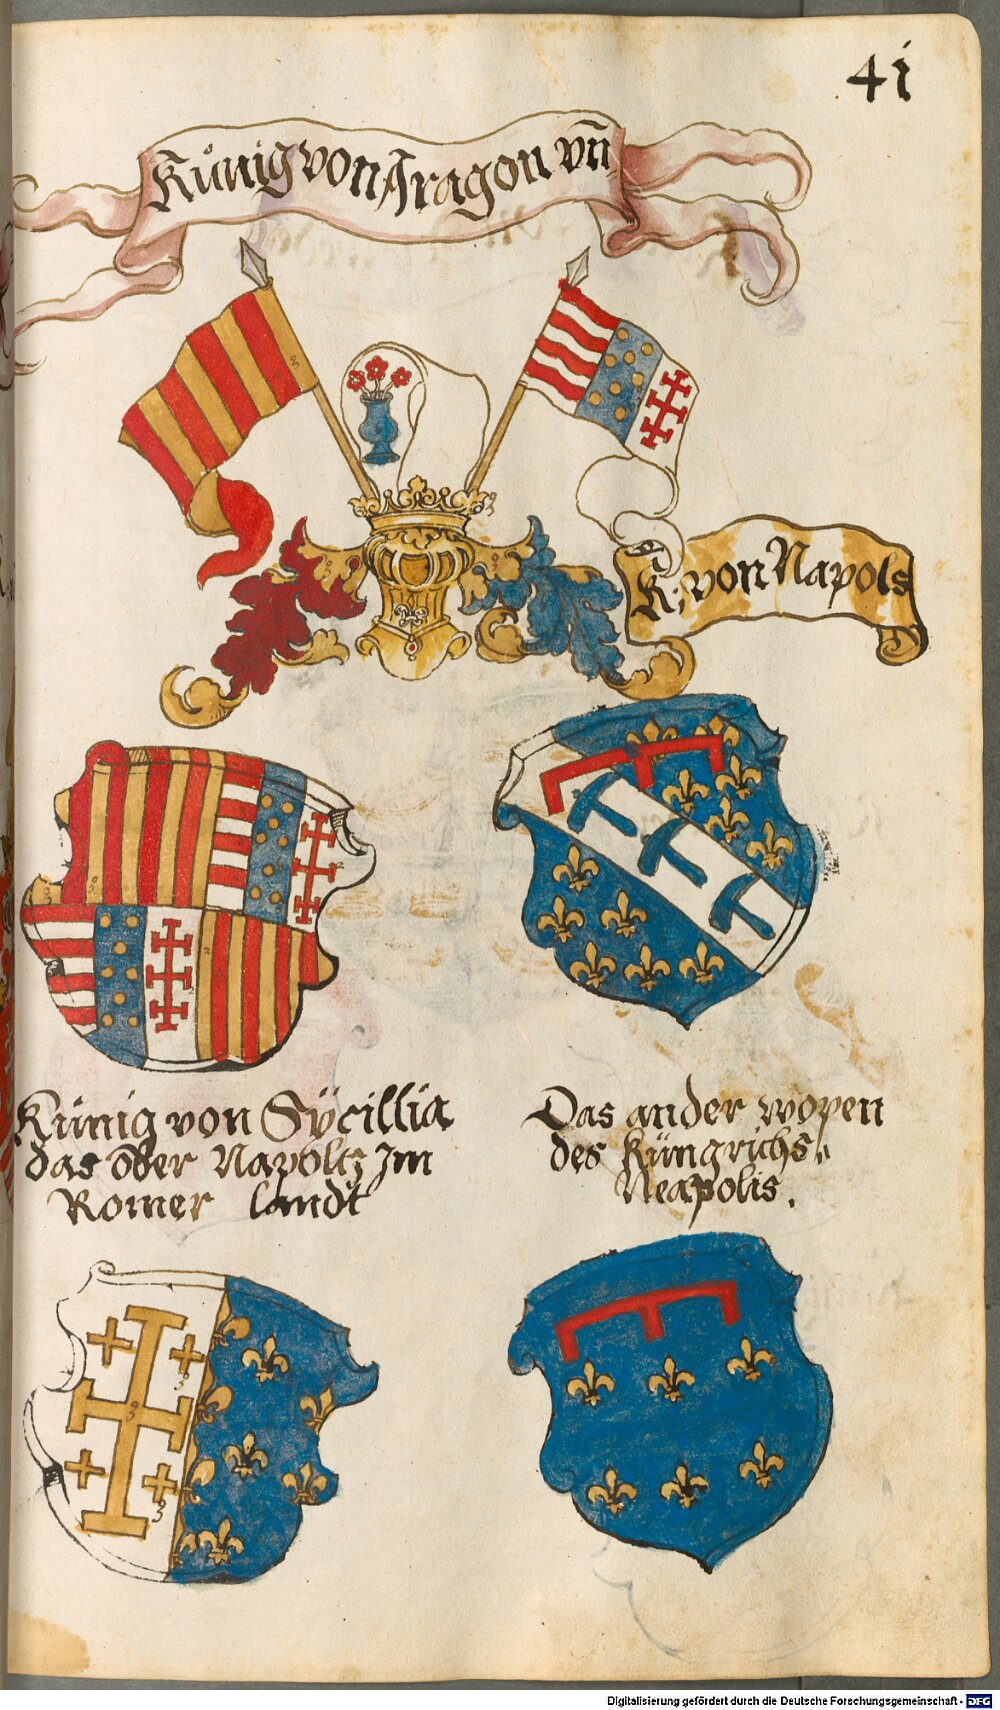 41
Künig von Aragon vn̄
K: von Napols
Künig von Sÿcillia
das ober Napoltz Jm
Romer landt
Das ander wopen
des Küngrichs
Neapolis.
Digitalisierung gefördert durch die Deutsche Forschungsgemeinschaft - DFG